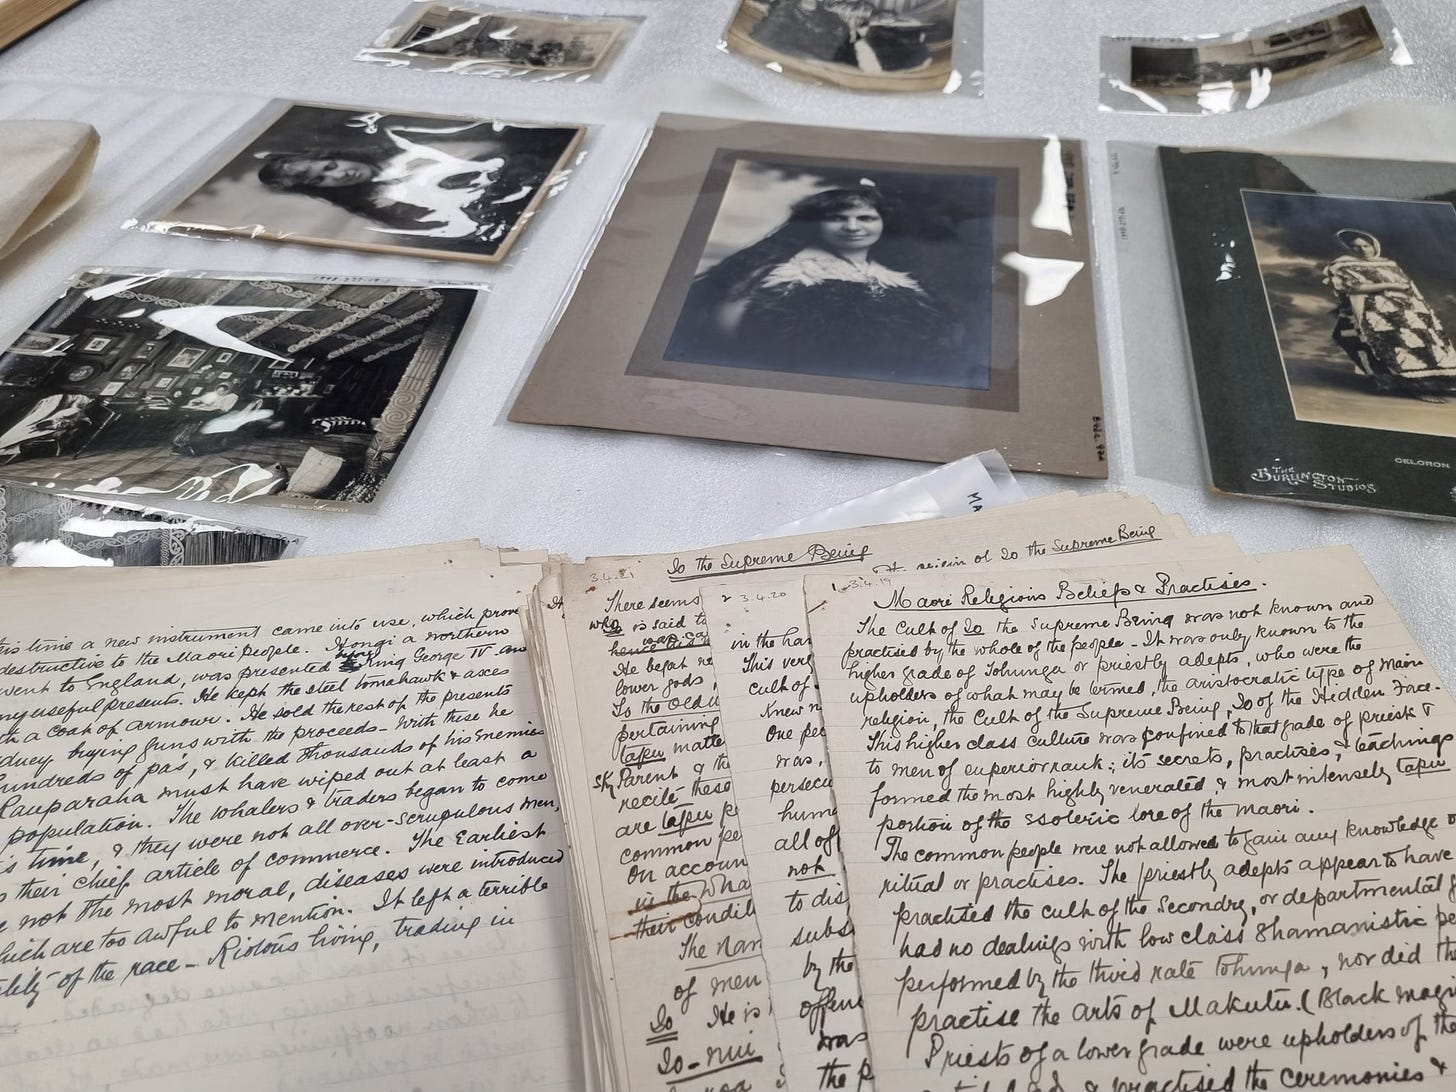 THE
BURLINGTON
STUDIOS
MA
his time a new instrument came into use, which prove
destructive to the Maori people. Hongi a northern
went to England, was presented King George IV. and
ny useful presents. He kept the steel tomahawk & axes
h a coat of armour. He sold the rest of the presents
dney buying guns with the proceeds - with these he
hundreds of pa's, & killed thousands of his enemies
Rauparaha must have wiped out at least a
population. The whalers & traders began to come
is time, & they were not all over-scrupulous men,
s their chief article of commerce. The Earliest
e not the most moral, diseases were introduced
which are too awful to mention. It left a terrible
ality of the race - Riotous living, trading in
origin of Io the Supreme Being
3.4.21 Io the Supreme Being
There seems
who is said to
He begat
lower gods,
To the Old
pertaining
tapu matte
Parent & the
recite these
are tapu
common pe
on accoun
in the Wha
their condit
The nam
of men
Io He is
Io-nui
2 3.4.20
in the har
This very
cult of
Knew n
one pe
was,
persecu
hum
all of
not
to dis
subs
by the
offen
was
the p
1 3.4.19
Maori Religious Beliefs & Practises.
The Cult of Io the Supreme Being was not known and
practised by the whole of the people - It was only known to the
higher grade of Tohunga or priestly adepts, who were the
upholders of what may be termed, the aristocratic type of Maori
religion, the Cult of the Supreme Being, Io of the Hidden Face.
This higher class culture was confined to that grade of priest &
to men of superior rank; its secrets, practises, & teachings
formed the most highly venerated, & most intensely tapu
portion of the esoteric lore of the Maori.
The common people were not allowed to gain any knowledge o
ritual or practises. The priestly adepts appear to have
practised the cult of the Secondry, or departmental
had no dealings with low class Shamanistic pe
performed by the third rate Tohunga, nor did the
practise the arts of Makutu. (Black magi
Priests of a lower grade were upholders of the
& practised the ceremonies &